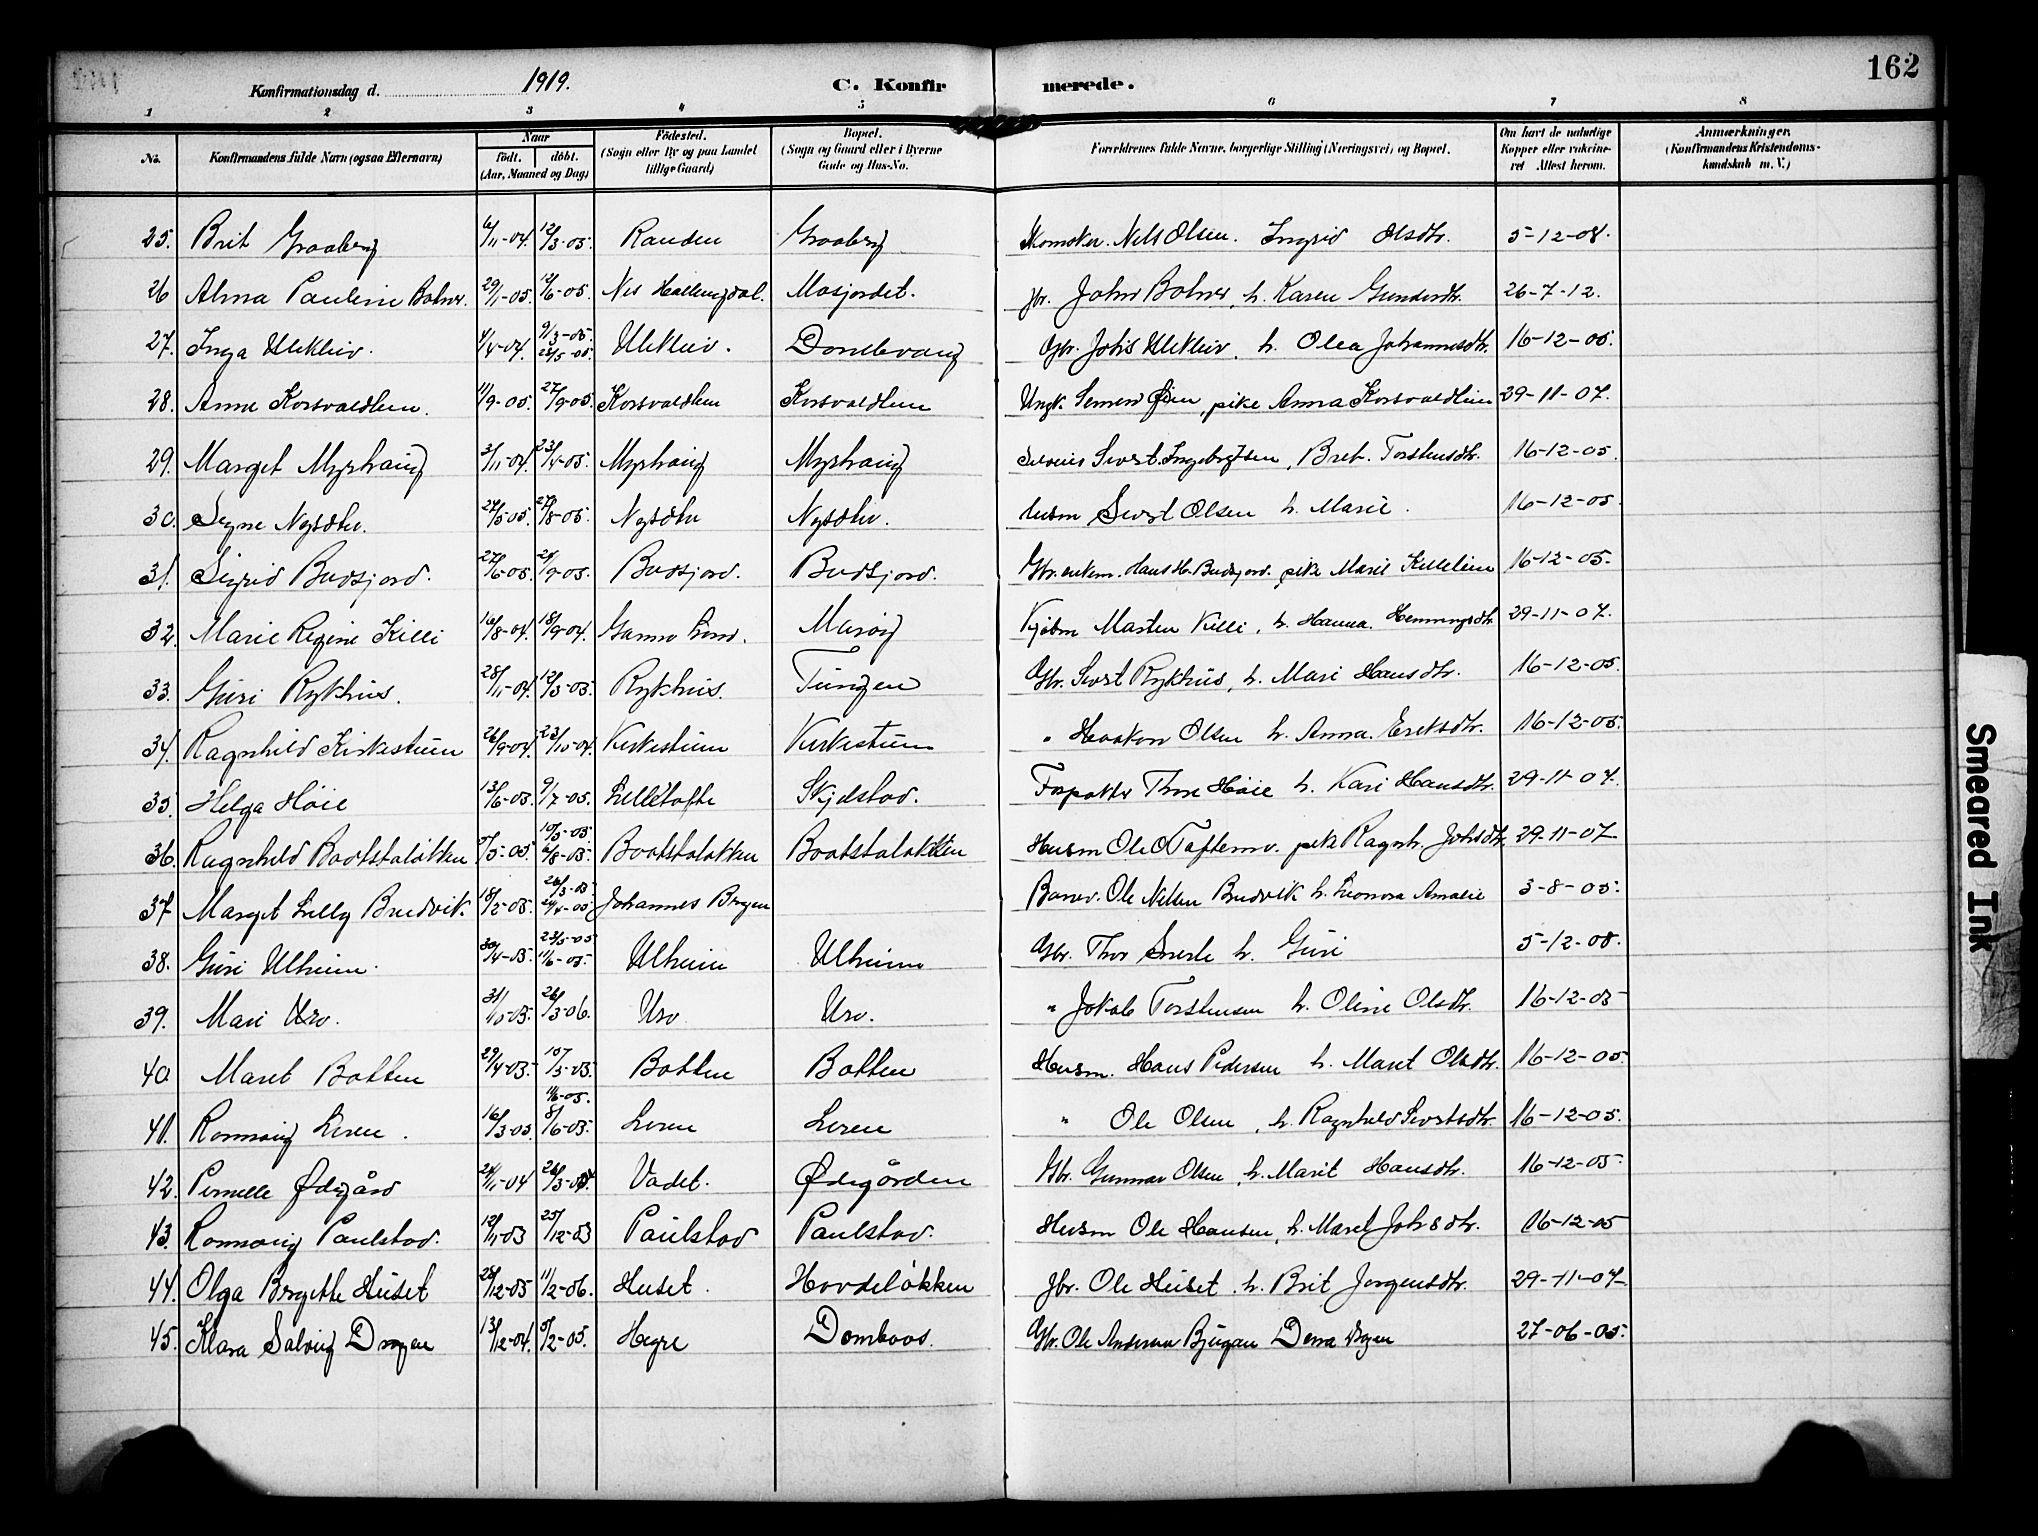 162
Konfirmationsdag d. 1919. C. Konfirmerede.
1 2 3 4 5 6 7 8
No. Konfirmandens fulde Navn (ogsaa Efternavn) Naar født. døbt. (Aar, Maaned og Dag) Fødested. (Sogn eller By og paa Landet tillige Gaard) Bopæl. (Sogn og Gaard eller i Byerne Gade og Hus-No. Forældrenes fulde Navne, borgerlige Stilling (Næringsvei) og Bopæl. Om havt de naturlige Kopper eller vaccineret Attest herom. Anmærkninger. (Konfirmandens Kristendomskundskab m. V.)
25. Brit Graaberg 6/11-04. 12/3-05. Randen Graaberg Nils Olsen. Ingrid Olsdtr. 5-12-08.
26 Alma Pauline Bolner. 29/1-05. 12/6-05. Nes Hallingdal. Mosjordet. John Bolner, h. Karen Gundersdtr. 26-7-12.
27. Inga Ulekleiv. 1/4-04. 9/3-05. 28/5-05. Ulekleiv. Gbr. Johs Ulekleiv, h. Olea Johannesdtr. 16-12-05.
28. Anne Korsvoldlien. 11/9-05. 27/9-05. Korsvoldlien Korsvoldlien Ungk. Simen Øien, pike Anna Korsvoldlien 29-11-07.
29. Marget Myrhaug 3/11-04. 23/4-05. Myrhaug Myrhaug Sivert Ingebrigtsen, Brit. Torstensdtr. 16-12-05.
30. Signe Nysæter. 24/5-05. 27/8-05. Nysæter Nysæter. Husm Sivert Olsen h. Marie. 16-12-05.
31. Sigrid Budsjord. 27/6-05. 29/9-05. Budsjord. Budsjord. Gbr. enkem. Hans H. Budsjord. pike Marit Killelien 16-12-05.
32. Marie Regine Killi 16/8-04. 18/9-04. Morten Killi, h. Hanna Henningsdtr 29-11-07.
33. Guri Rykhus. 28/11-04. 12/3-05. Rykhus. Tungen Gbr. Sivert Rykhus, h. Mari Hansdtr. 16-12-05.
34. Ragnhild Kirkestuen 26/9-04 23/10-04. Kirkestuen Kirkestuen " Haakon Olsen h. Anna Eriksdtr. 16-12-05.
35. Helga Høie 13/6-05. 9/7-05. Lilletofte Skjelstad. Forpakter Thor Høie h. Kari Hansdtr. 29-11-07.
36. Ragnhild Baatstaløkken 5/5-05. 10/5-05 6/8-05. Baatstaløkken Baatstaløkken Husm Ole O Toftemo. pike Ragnh. Johsdtr. 29-11-07
37 Marget Lelly Bredvik. 18/2-05. 26/3-05. 24/4-05. Johannes Bergen Banev. Ole Nilsen Bredvik h. Leonora Amalie 3-8-05.
38. Guri Ulheim. 30/4-05. 23/5-05 11/6-05. Ulheim Ulheim Gbr. Thor Snerle h. Guri 5-12-08.
39. Mari Uro. 31/10-05. 26/3-06. Uro Uro. " Jakob Torstensen h. Oline Olsdtr. 16-12-05
40 Marit Botten 29/4-05. 10/5-05. 11/6-05. Botten Botten Husm. Hans Pedersen h. Marit Olsdtr. 16-12-05
41. Ronnaug Loren. 16/3-05. 8/6-05. Loren Loren " Ole Olsen, h. Ragnhild Sivertsdtr. 16-12-05.
42. Pernelle Ødegård 24/11-04 26/3-05. Vadet. Ødegården Gbr. Gunnar Olsen, h. Marit Hansdtr. 16-12-05
43. Ronnaug Paulstad. 12/11-03 25/12-03 Paulstad Paulstad. Husm Ole Hansen, h. Marit Johsdtr. 16-12-05
44. Olga Birgitte Huset 28/12-05 11/2-06. Huset. Hovdeløkken Gbr. Ole Huset. h. Brit Jørgensdtr. 29-11-07
45. Klara Solveig 13/12-04. 5/2-05. Hegre Dombaas. Gbr. Ole Andersen Bjugan 27-06-05.
Smeared Ink